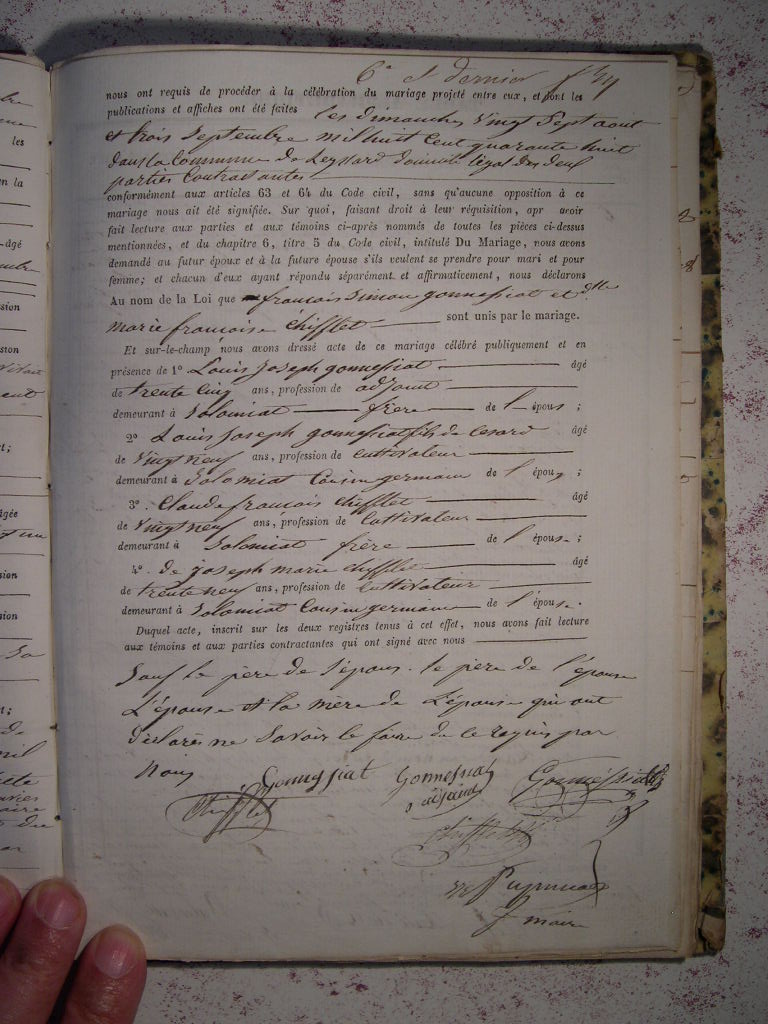 6e et dernier
nous ont requis de procéder à la célébration du mariage projeté entre eux, et dont les
publications et affiches ont été faites les dimanches vingt sept aout
et trois septembre mil huit cent quarante huit
dans la Commune de Leyssard domicile légal des deux
parties contractantes
conformément aux articles 63 et 64 du Code civil, sans qu'aucune opposition à ce
mariage nous ait été signifiée. Sur quoi, faisant droit à leur réquisition, apr avoir
fait lecture aux parties et aux témoins ci-après nommés de toutes les pièces ci-dessus
mentionnées, et du chapitre 6, titre 5 du Code civil, intitulé Du Mariage, nous avons
demandé au futur époux et à la future épouse s'ils veulent se prendre pour mari et pour
femme; et chacun d'eux ayant répondu séparément et affirmativement, nous déclarons
Au nom de la Loi que françois Simon gonnessiat et dlle
marie françoise chifflet sont unis par le mariage.
Et sur-le-champ nous avons dressé acte de ce mariage célébré publiquement et en
présence de 1° Louis joseph gonnessiat âgé
de trente cinq ans, profession de adjoint
demeurant à Solomiat frère de l'épous ;
2° Louis joseph gonnessiat fils de Cesard âgé
de vingt neuf ans, profession de cultivateur
demeurant à Solomiat Cousin germain de l'épou ;
3° Claude françois chifflet âgé
de vingt neuf ans, profession de Cultivateur
demeurant à Solomiat frère de l'épouse ;
4° de joseph marie chifflet âgé
de trente neuf ans, profession de Cultivateur
demeurant à Solomiat Cousin germain de l'épouse.
Duquel acte, inscrit sur les deux registres tenus à cet effet, nous avons fait lecture
aux témoins et aux parties contractantes qui ont signé avec nous
Sauf le père de l'époux. le père de l'épouse
L'épouse et la mère de L'épouse qui ont
déclarés ne Savoir le faire de ce requis par
nous
Gonnessiat Gonnessiat Gonnessiat
Chifflet adjoint
Chifflet
maire